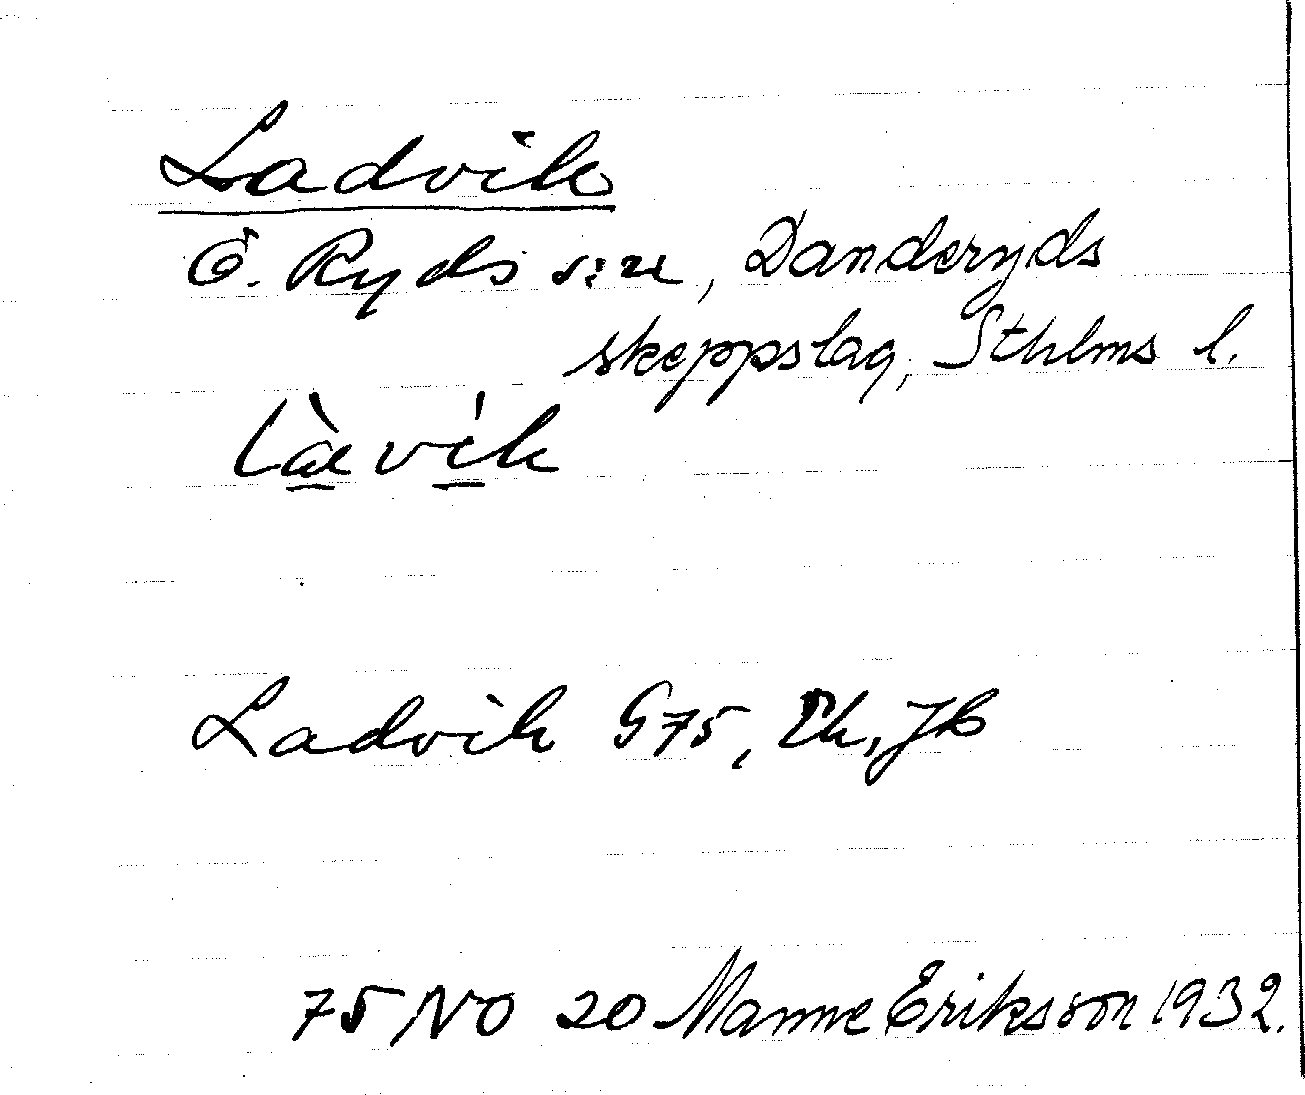 Ladvik
Ö. Ryds s:n, Danderyds
skeppslag, Sthlms l.
làvik
Ladvik G75, Ek, Jb
75 NO 20 Manne Eriksson 1932.